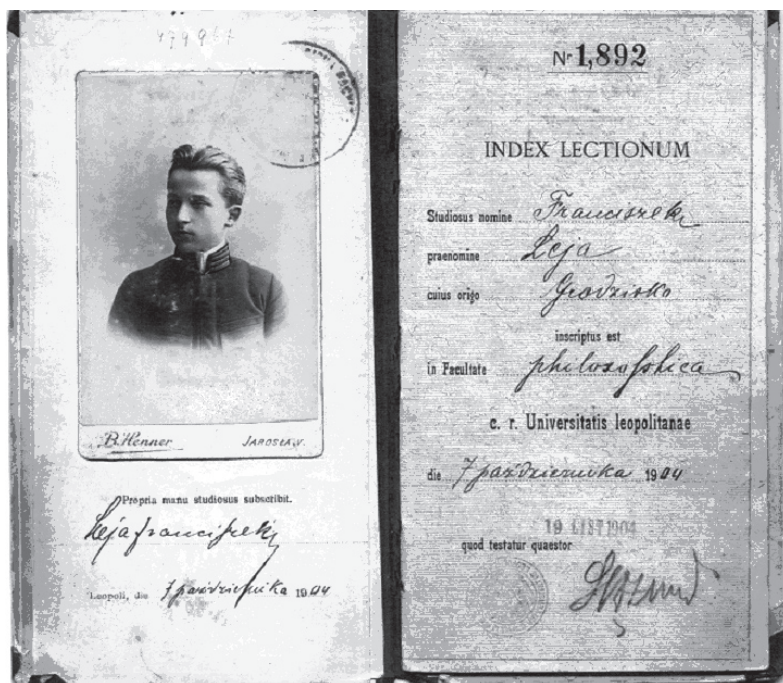 B. Henner JAROSŁAW.
Propria manu studiosus subscribit.
Leja Franciszek
Leopoli, die 7 października 1904
Nr 1,892
INDEX LECTIONUM
Studiosus nomine Franciszek
praenomine Leja
cuius origo Grodzisko
inscriptus est
in Facultate philozofphica
c. r. Universitatis leopolitanae
die 7 października 1904
19 LIST 1904
quod testatur quaestor